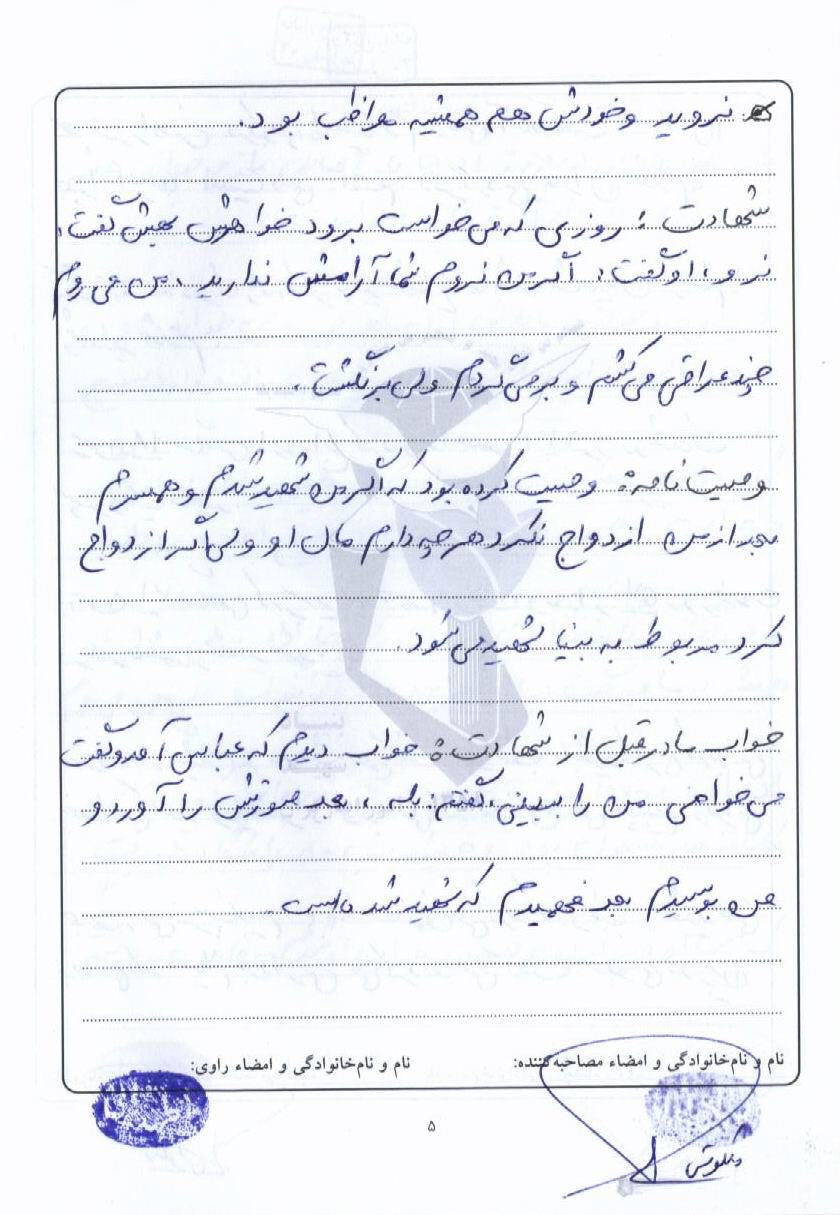 نروید و خودش هم همیشه مواظب بود.
شهادت: روزی که می‌خواست برود خواهرش بهش گفت:
نرو، او گفت: اگر من نروم شما آرامش ندارید، من می‌روم
چند عراقی می‌کشم و برمی‌گردم ولی برنگشت.
وصیت نامه: وصیت کرده بود که اگر من شهید شدم و همسرم
بعد از من ازدواج نکرد هر چه دارم مال او ولی اگر ازدواج
کرد مربوط به بنیاد شهید می‌شود.
خواب مادر قبل از شهادت: خواب دیدم که عباس آمد و گفت
می‌خواهی من را ببینی، گفتم: بله، بعد صورتش را آورد و
من بوسیدم بعد فهمیدم که شهید شده است.
نام و نام‌خانوادگی و امضاء مصاحبه‌کننده: نام و نام‌خانوادگی و امضاء راوی:
۵